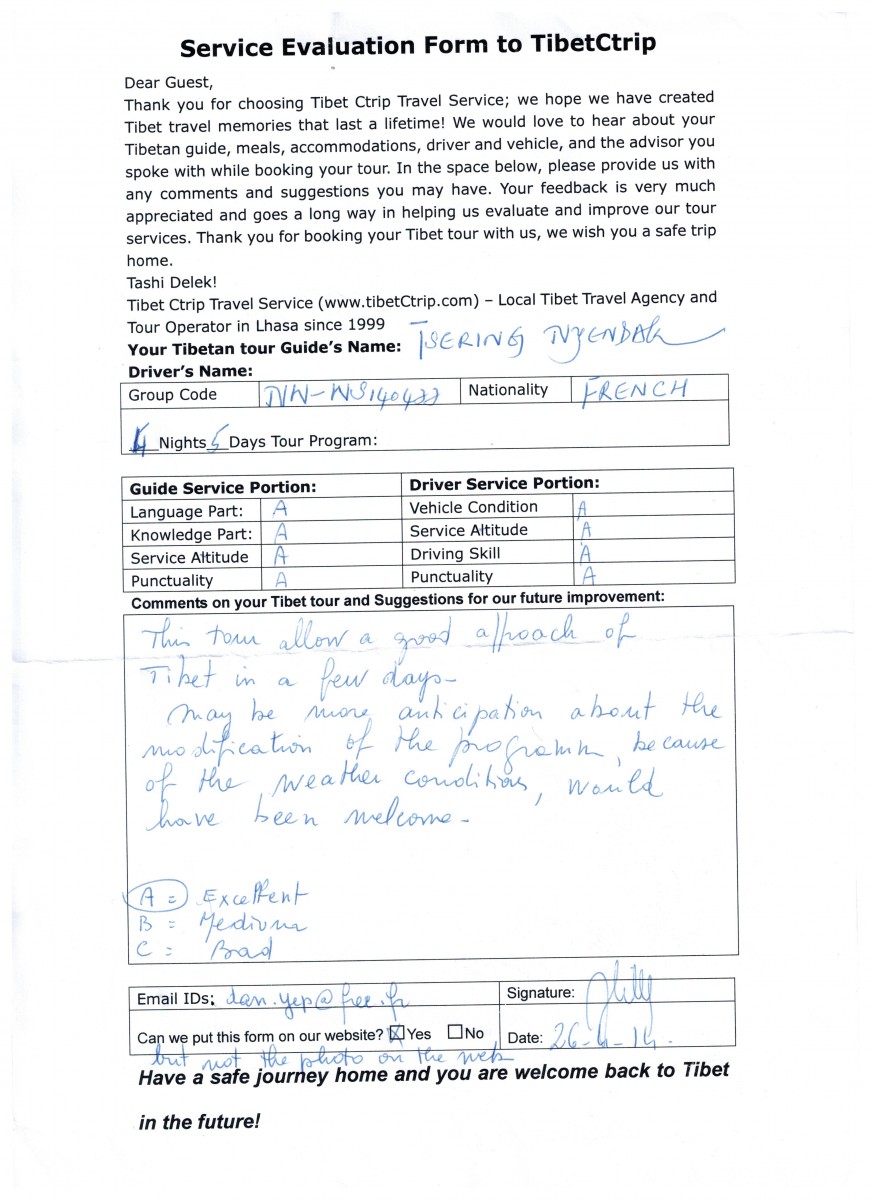 Service Evaluation Form to TibetCtrip
Dear Guest,
Thank you for choosing Tibet Ctrip Travel Service; we hope we have created
Tibet travel memories that last a lifetime! We would love to hear about your
Tibetan guide, meals, accommodations, driver and vehicle, and the advisor you
spoke with while booking your tour. In the space below, please provide us with
any comments and suggestions you may have. Your feedback is very much
appreciated and goes a long way in helping us evaluate and improve our tour
services. Thank you for booking your Tibet tour with us, we wish you a safe trip
home.
Tashi Delek!
Tibet Ctrip Travel Service (www.tibetCtrip.com) – Local Tibet Travel Agency and
Tour Operator in Lhasa since 1999
Your Tibetan tour Guide's Name: TSERING
Driver's Name:
Group Code Nationality FRENCH
4 Nights 5 Days Tour Program:
Guide Service Portion: Driver Service Portion:
Language Part: A Vehicle Condition A
Knowledge Part: A Service Altitude A
Service Altitude A Driving Skill A
Punctuality A Punctuality A
Comments on your Tibet tour and Suggestions for our future improvement:
This tour allow a good affoach of
Tibet in a few days-
May be more anticipation about the
modification of the programm, because
of the weather conditions, would
have been welcome-
A = Excellent
B = Medium
C = Bad
Email IDs: dan.yep@free.fr Signature:
Can we put this form on our website? ☒Yes ☐No Date: 26-4-14.
but not the photo on the web
Have a safe journey home and you are welcome back to Tibet
in the future!